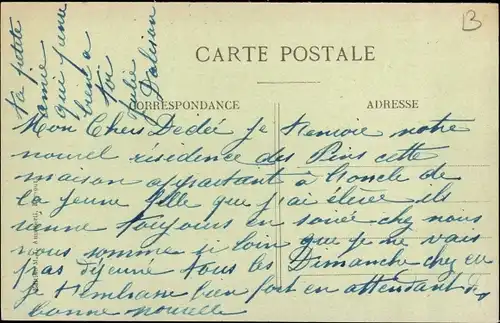 B
CARTE POSTALE
CORRESPONDANCE
ADRESSE
Ta petite
amie
qui pense
bien a
toi
Julie
Mon Cher Dédée je t'envoie notre
nouvel résidence des Pins cette
maison appartant à l'oncle de
la jeune fille que j'ai élevée ils
vienne toujours en soirée chez nous
nous somme si loin que je ne vais
pas déjeune tous les Dimanche chez eu
je t'embrasse bien fort en attendant de
bonne nouvelle